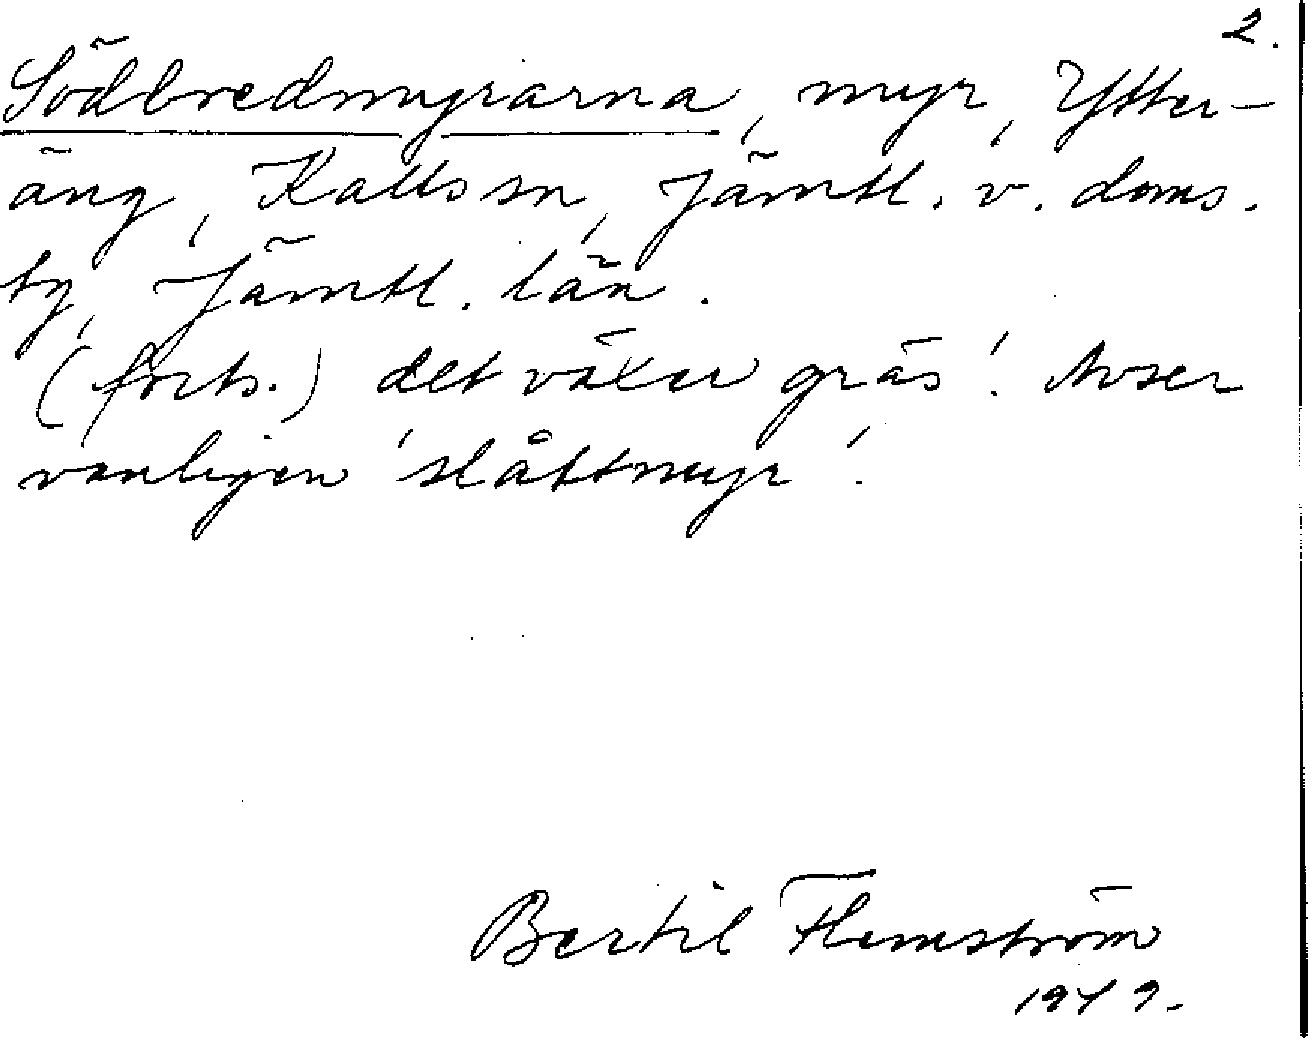 2.
Södbredmyrarna, myr, Ytter-
äng, Kalls sn, Jämtl. v. doms.
ty, Jämtl. län.
(forts.) det växer gräs'. Avser
vanligen 'slåttmyr'.
Bertil Flemström
1979.